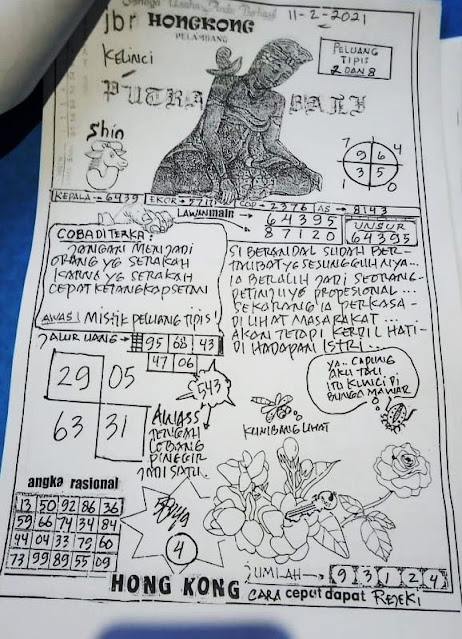 Semoga Usaha Anda Berhasil
jbr HONGKONG
11-2-2021
PELAMBANG
KELINCI
PELUANG
TIPIS
2 DAN 8
PUTRA BALI
Shio
7 4
9 6
3 5
1 0
KEPALA → 6439 EKOR → COP → 2376 AS → 8143
LAWAN main → 64395
87120
UNSUR
64395
COBA DI TERKA:
JANGAN MENJADI
ORANG YG SERAKAH
KARNA YG SERAKAH
CEPAT KETANGKAP SETAN
AWAS! MISTIK PELUANG TIPIS!
SI BERANDAL SUDAH BER-
TAUBAT YG SESUNGGUHNYA...
IA BERALIH JADI SEORANG-
PETINJU YG PROPESIONAL...
SEKARANG IA PERKASA-
DI LIHAT MASARAKAT...
AKAN TETAPI KERDIL HATI-
DI HADAPAN ISTRI...
JALUR UANG → 95 68 43
47 06
29 05
63 31
543
AWASS
TENGAH
LOBANG
PINEGIR
JADI SATU.
YA.. CAPUNG
AKU TALI
ITU KUNCI DI
BUNGA MAWAR
KUMBANG LIHAT
angka rasional
13 50 92 86 36
59 66 74 34 84
44 04 33 79 60
73 99 89 55 09
4
JUMLAH → 9 3 1 2 4
HONG KONG CARA cepat dapat REJEKI